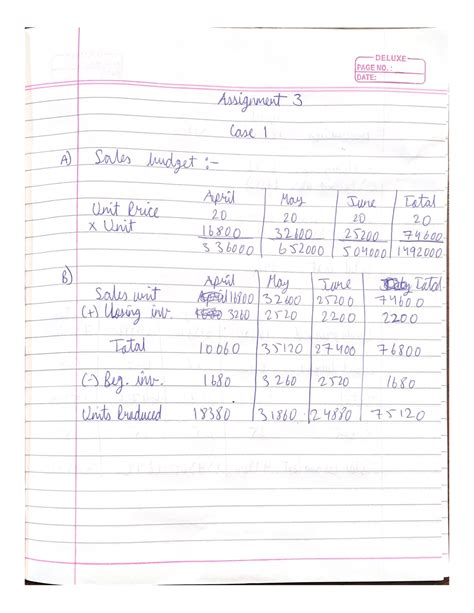 DELUXE
PAGE NO.:
DATE:
Assignment 3
Case 1
A) Sales budget :-
April May June Total
Unit Price 20 20 20 20
x Unit 16800 32600 25200 74600
336000 652000 504000 1492000
B) April May June Total
Sales unit 16800 32600 25200 74600
(+) Closing inv. 3260 2520 2200 2200
Total 10060 35120 27400 76800
(-) Beg. inv. 1680 3260 2520 1680
Units Produced 18380 31860 24880 75120